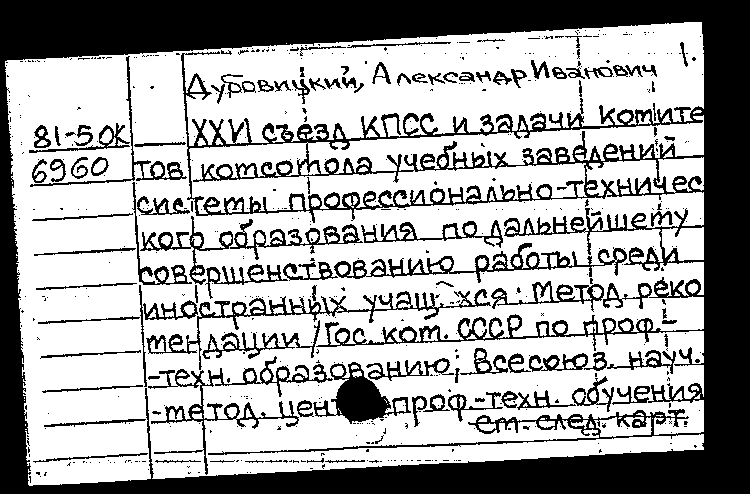 Дубовицкий, Александр Иванович 1.
81-50К XXVI съезд КПСС и задачи комите
6960 тов комсомола учебных заведений
системы профессионально-техничес
кого образования по дальнейшему
совершенствованию работы среди
иностранных учащ-хся: Метод. реко
мендации / Гос. ком. СССР по проф.-
-техн. образованию; Всесоюз. науч.-
-метод. центр проф.-техн. обучения
см. след. карт.